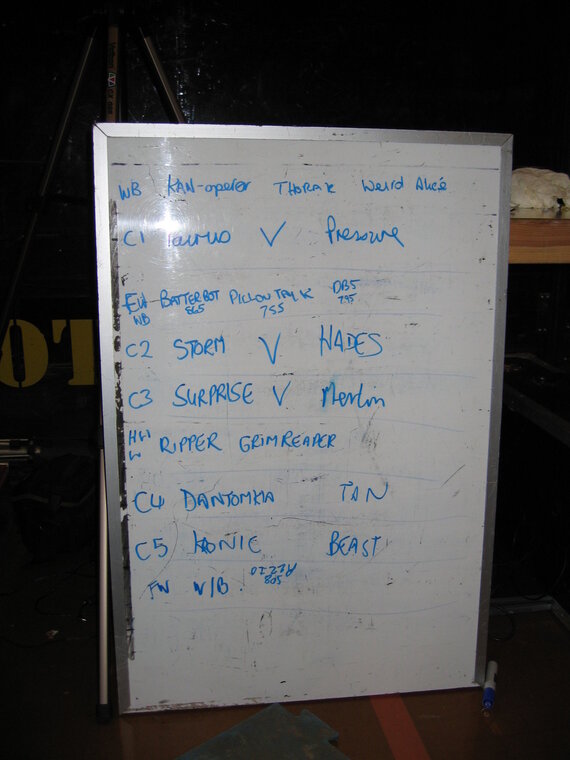 WB KAN-opener THORAK Weird Alice
C1 V Pressure
F
BATTERBOT PILLOWTALK DB5
WB 865 755 795
C2 STORM V HADES
C3 SURPRISE V Merlin
HW RIPPER GRIMREAPER
W
C4 DANTOMKIA TAN
C5 KRONIC BEAST
FW W/B
805
OT